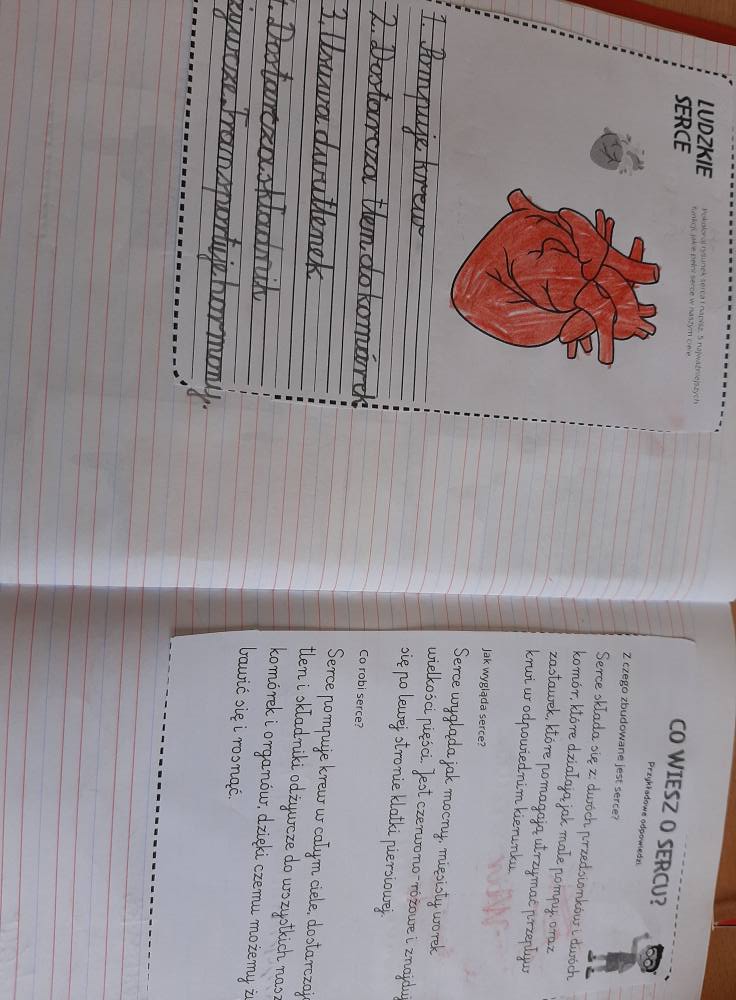 LUDZKIE
SERCE
Pokoloruj rysunek serca i napisz 5 najważniejszych
funkcji, jakie pełni serce w naszym ciele.
1. Pompuje krew
2. Dostarcza tlen do komórek
3. Usuwa dwutlenek
4. Dostarcza składnik
żywcze. Transportuje hormony.
CO WIESZ O SERCU?
Przykładowe odpowiedzi
Z czego zbudowane jest serce?
Serce składa się z dwóch przedsionków i dwóch
komór, które działają jak małe pompy, oraz
zastawek, które pomagają utrzymać przepływ
krwi w odpowiednim kierunku.
Jak wygląda serce?
Serce wygląda jak mocny, mięsisty worek
wielkości pięści. Jest czerwono-różowe i znajduj
się po lewej stronie klatki piersiowej.
Co robi serce?
Serce pompuje krew w całym ciele, dostarczaj
tlen i składniki odżywcze do wszystkich nasz
komórek i organów, dzięki czemu możemy ż
bawić się i rosnąć.